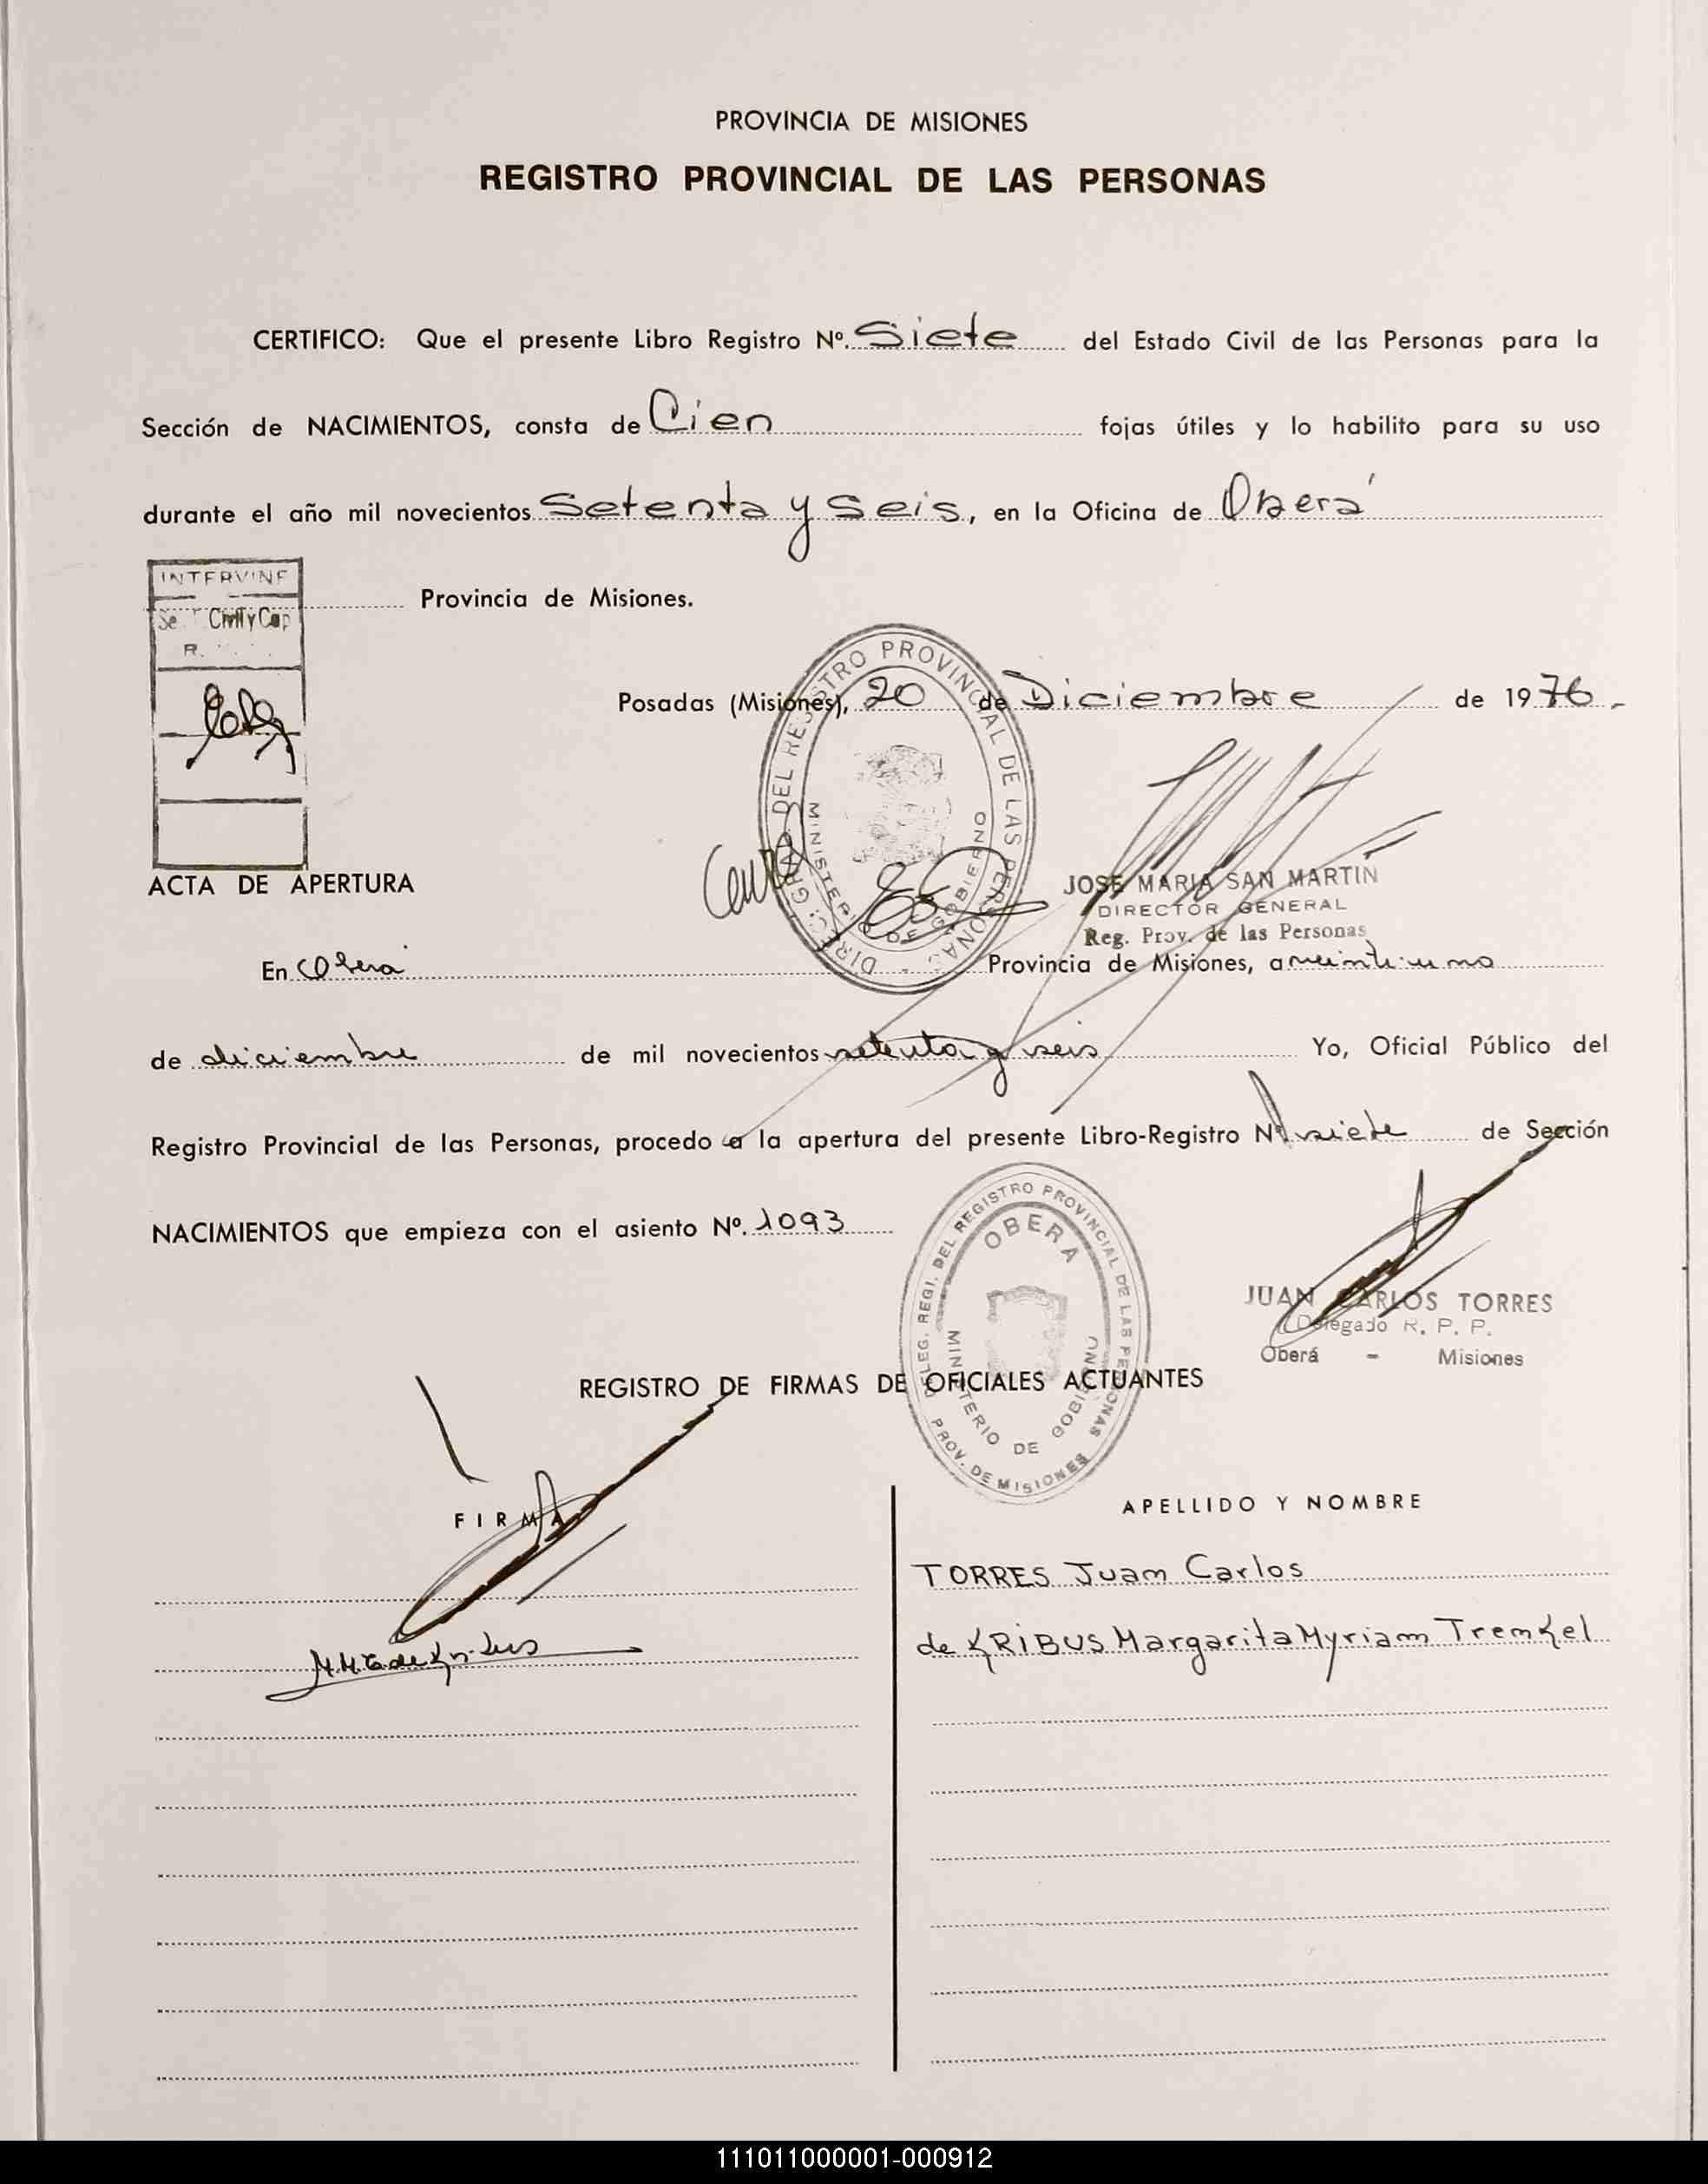 PROVINCIA DE MISIONES
REGISTRO PROVINCIAL DE LAS PERSONAS
CERTIFICO: Que el presente Libro Registro Nº. Siete del Estado Civil de las Personas para la
Sección de NACIMIENTOS, consta de Cien fojas útiles y lo habilito para su uso
durante el año mil novecientos Setenta y Seis, en la Oficina de Oberá
INTERVINE
Civil y Cap
Provincia de Misiones.
Posadas (Misiones), 20 de Diciembre de 1976.
DIRECC. GRAL. DEL REGISTRO PROVINCIAL DE LAS PERSONAS
MINISTERIO DE GOBIERNO
JOSE MARIA SAN MARTIN
DIRECTOR GENERAL
Reg. Prov. de las Personas
ACTA DE APERTURA
En Oberá Provincia de Misiones, a veintiuno
de diciembre de mil novecientos setenta y seis Yo, Oficial Público del
Registro Provincial de las Personas, procedo a la apertura del presente Libro-Registro Nº. siete de Sección
NACIMIENTOS que empieza con el asiento Nº. 1093
DELEG. REGI. DEL REGISTRO PROVINCIAL DE LAS PERSONAS
OBERA
MINISTERIO DE GOBIERNO
PROV. DE MISIONES
JUAN CARLOS TORRES
Delegado R. P. P.
Oberá - Misiones
REGISTRO DE FIRMAS DE OFICIALES ACTUANTES
FIRMA
APELLIDO Y NOMBRE
TORRES Juam Carlos
M.M.T. de Kribus
de KRIBUS Margarita Myriam Tremkel
111011000001-000912